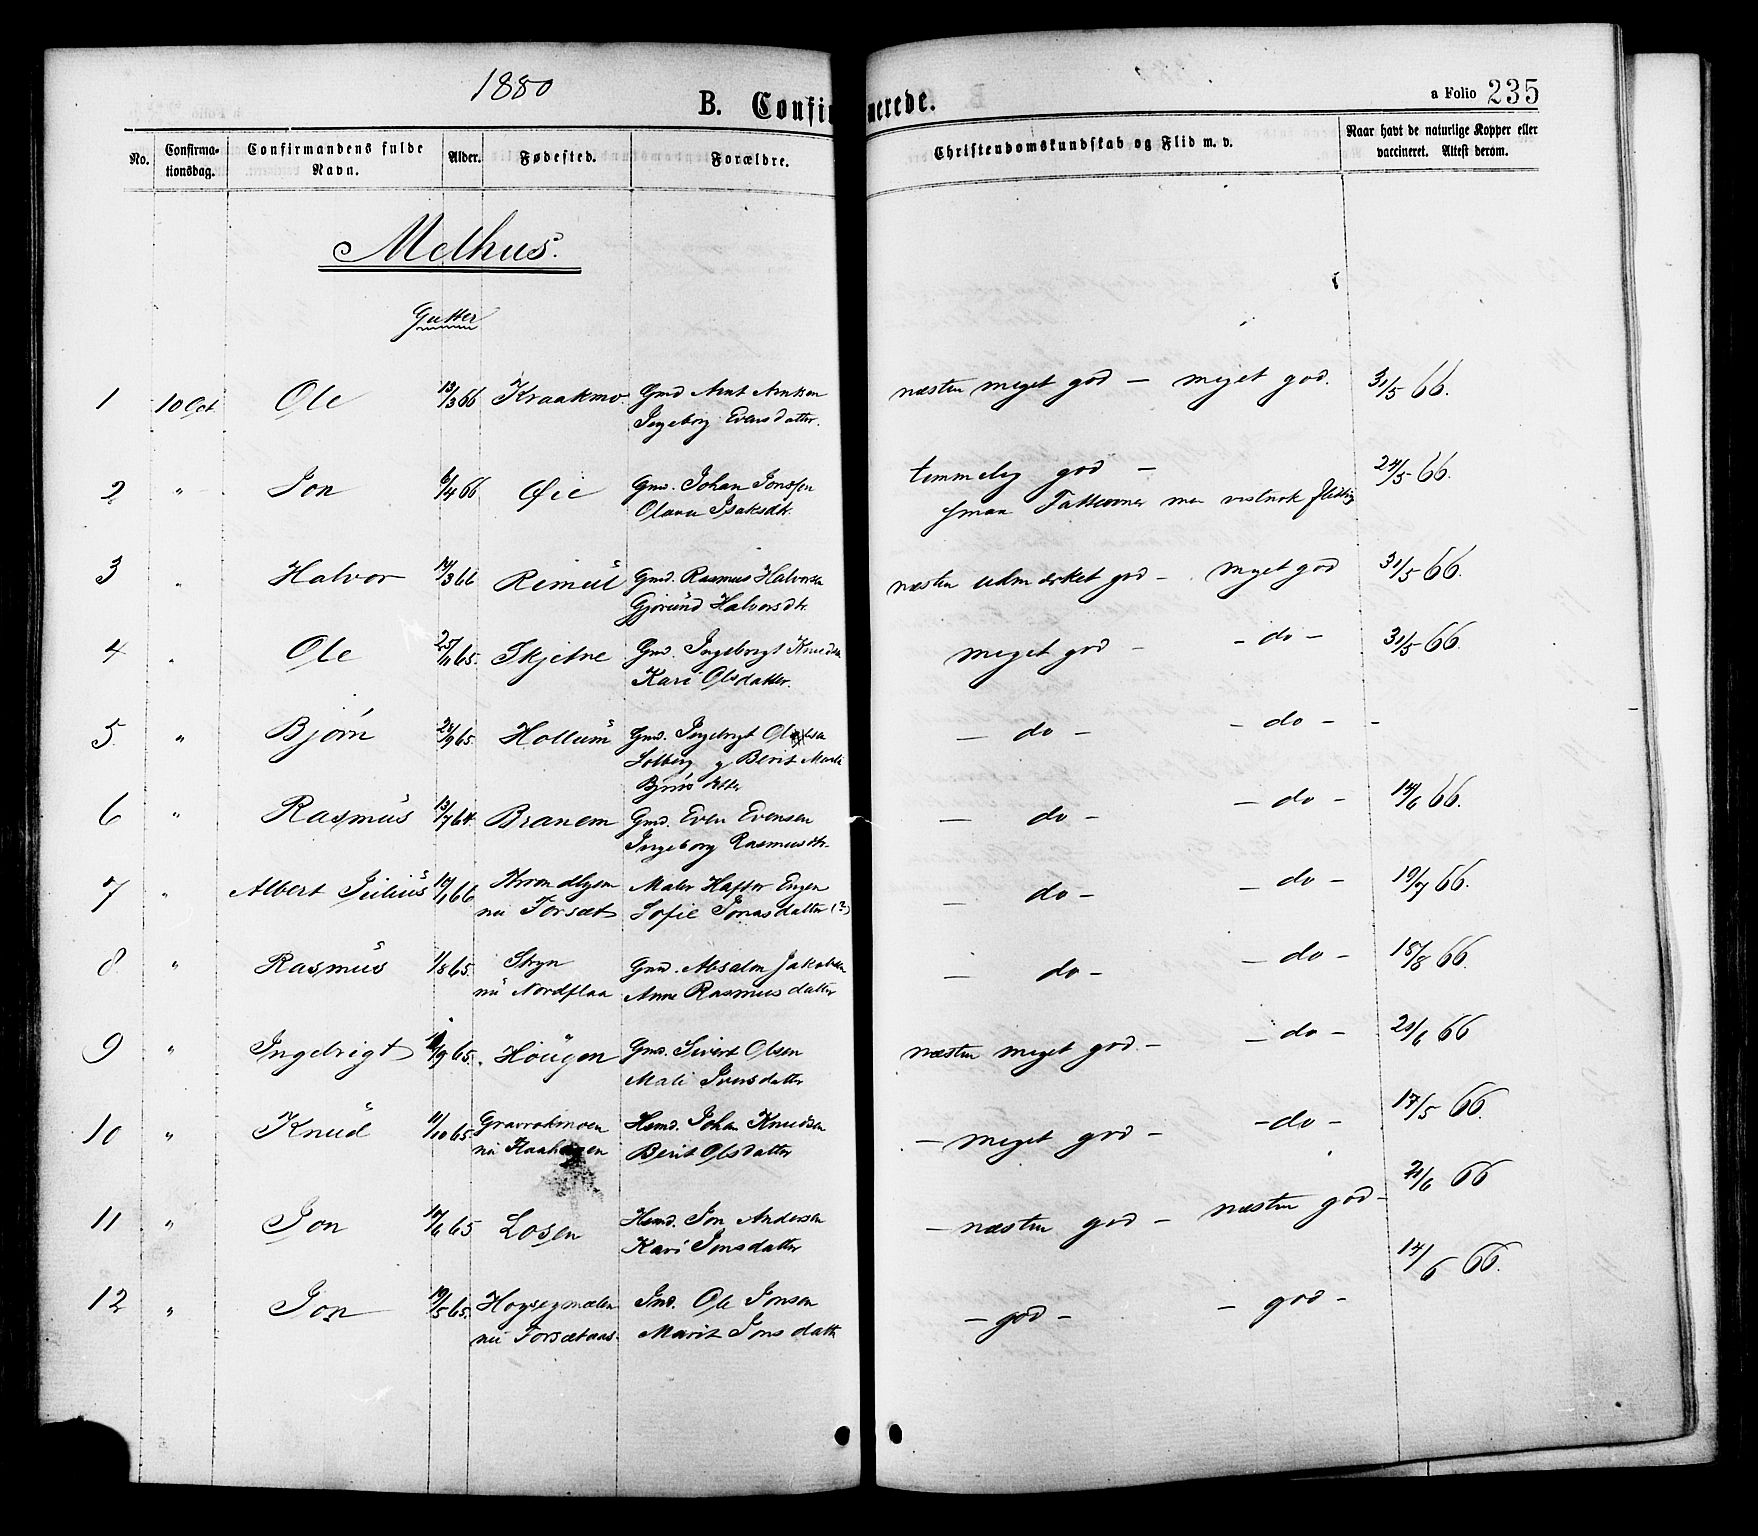 1880
B. Confirmerede.
a Folio 235
No. Confirma-tionsdag. Confirmandens fulde Navn. Alder. Fødested. Forældre. Christendomskundskab og Flid m. v. Naar havt de naturlige Kopper eller vaccineret. Attest derom.
Melhus.
Gutter
1 10 Oct Ole 13/3 66 Kraakmo. Gmd Arnt Arntsen næsten meget god — meget god. 31/5 66.
Ingeborg Evensdatter.
2 " Jon 6/4 66 Øie Gmd. Johan Jonssen temmelig god — 24/5 66.
Olava Isaksdtr. smaa men vistnok flittig
3 " Halvor 14/3 66 Rimul Gmd. Rasmus Halvorsen næsten udmærket god — meget god 31/5 66.
Gjørund Halvorsdtr.
4 " Ole 25/11 65. Skjetne Gmd. Ingebrigt Knudsen meget god — — do — 31/5 66.
Kari Olsdatter.
5. " Bjørn 28/9 65. Hollum Gmd. Ingebrigt — do — — do — -
Solberg og Berit Marta
Bjørnsdatter
6 " Rasmus 13/7 64. Branem Gmd. Even Evensen — do — — do — 14/6 66.
Ingeborg Rasmusdtr.
7 " Albert Julius 17/1 66 Trondhjem Maler Haftor Engen — do — — do — 19/7 66.
nu Forsæt Sofie Jonasdatter (?)
8 " Rasmus 1/8 65. Stryn Gmd. Absalon Jakobsen — do — — do — 18/8 66.
nu Nordflaa Anne Rasmusdatter
9 " Ingebrigt /9 65. Hougen Gmd. Sivert Olsen næsten meget god. — — do — 21/6 66
Mali Iversdatter
10 " Knud 11/10 65. Gravrokmoen Hsmd. Johan Knudsen — meget god — — do — 17/5 66.
nu Kaahaugen Berit Olsdatter
11 " Jon 14/6 65 Losen Hsmd. Jon Andersen — næsten god — næsten god — 21/6 66
Kari Jonsdatter
12 " Jon 19/5 65. Høysegmælen Ind. Ole Jonsen — god — — god — 14/6 66.
nu Forsætaas. Marit Jonsdatt